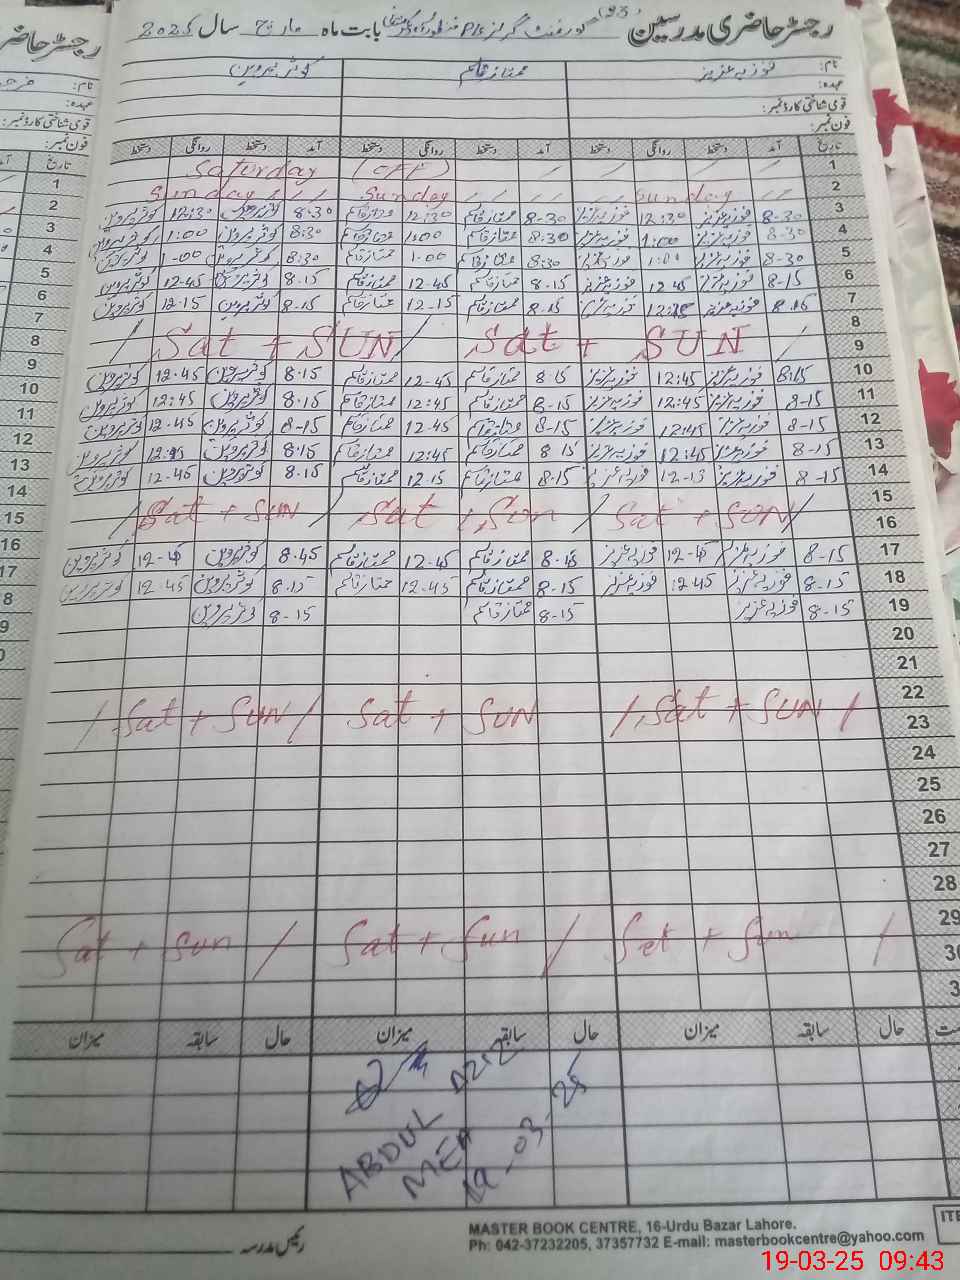 رجسٹر حاضری مدرسین گورنمنٹ گرلز P/S بابت ماہ مارچ سال 2025
نام: فوزیہ عزیز ممتاز قاسم کوثر پروین
عہدہ:
قومی شناختی کارڈ نمبر:
فون نمبر:
تاریخ آمد دستخط روانگی دستخط آمد دستخط روانگی دستخط آمد دستخط روانگی دستخط
1 Saturday (OFF)
2 Sunday Sunday Sunday
3 8-30 فوزیہ عزیز 12:30 فوزیہ عزیز 8-30 ممتاز قاسم 12:30 ممتاز قاسم 8:30 کوثر پروین 12:30 کوثر پروین
4 8-30 فوزیہ عزیز 1:00 فوزیہ عزیز 8:30 ممتاز قاسم 1:00 ممتاز قاسم 8:30 کوثر پروین 1:00 کوثر پروین
5 8-30 فوزیہ عزیز 1:01 فوزیہ عزیز 8:30 ممتاز قاسم 1.00 ممتاز قاسم 8:30 کوثر پروین 1-00 کوثر پروین
6 8-15 فوزیہ عزیز 12 45 فوزیہ عزیز 8-15 ممتاز قاسم 12-45 ممتاز قاسم 8.15 کوثر پروین 12-45 کوثر پروین
7 8.15 فوزیہ عزیز فوزیہ عزیز 8.15 ممتاز قاسم 12-15 ممتاز قاسم 8-15 کوثر پروین 12-15 کوثر پروین
8
9 Sat + SUN Sat + SUN
10 8:15 فوزیہ عزیز 12:45 فوزیہ عزیز 8.15 ممتاز قاسم 12-45 ممتاز قاسم 8.15 کوثر پروین 12.45 کوثر پروین
11 8-15 فوزیہ عزیز 12:45 فوزیہ عزیز 8-15 ممتاز قاسم 12:45 ممتاز قاسم 8.15 کوثر پروین 12:45 کوثر پروین
12 8-15 فوزیہ عزیز 12:45 فوزیہ عزیز 8-15 ممتاز قاسم 12.45 ممتاز قاسم 8-15 کوثر پروین 12-45 کوثر پروین
13 8-15 فوزیہ عزیز 12:45 فوزیہ عزیز 8 15 ممتاز قاسم 12:45 ممتاز قاسم 8:15 کوثر پروین کوثر پروین
14 8-15 فوزیہ عزیز 12-13 فوزیہ عزیز 8.15 ممتاز قاسم 12.15 ممتاز قاسم 8.15 کوثر پروین 12-45 کوثر پروین
15
16 Sat + SUN Sat + Sun Sat + SUN
17 8-15 فوزیہ عزیز 12-45 فوزیہ عزیز 8.45 ممتاز قاسم 12.45 ممتاز قاسم 8.45 کوثر پروین 12-45 کوثر پروین
18 8-15 فوزیہ عزیز 12:45 فوزیہ عزیز 8-15 ممتاز قاسم 12-45 ممتاز قاسم 8.15 کوثر پروین 12.45 کوثر پروین
19 8-15 فوزیہ عزیز 8-15 ممتاز قاسم 8-15 کوثر پروین
20
21
22
23 Sat + SUN Sat + SUN Sat + SUN
24
25
26
27
28
29
30 Sat + Sun Sat + Sun Sat + Sun
حال سابقہ میزان حال سابقہ میزان حال سابقہ میزان
ABDUL AZIZ
MEA
19-03-25
رئیس مدرسہ
MASTER BOOK CENTRE, 16-Urdu Bazar Lahore.
Ph: 042-37232205, 37357732 E-mail: masterbookcentre@yahoo.com
19-03-25 09:43